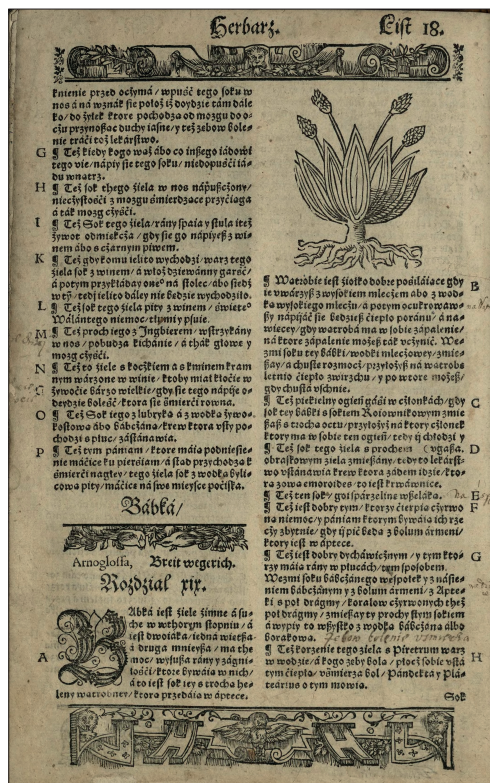 Herbarz. List 18.
knienie przed oczymá / wpuść tego soku w
nos á ná wznák sie położ iż doydzie tám dále
ko / do żyłek ktore pochodzą od mozgu do o-
czu przynosząc duchy iásne / y też zębow bole-
nie tráći toć lekárstwo.
G ¶ Też kiedy kogo wąż ábo co inßego iádowi
tego vie / nápiy sie tego soku / niedopuśći iá-
du wnątrz.
H ¶ Też sok thego źiela w nos nápußczony /
nieczystośći z mozgu śmierdzące przyćiąga
á ták mozg czyśći.
I ¶ Sok tego źiela / rány spaia y stula iteż
żywot odmiekcza / gdy sie go nápiyeß z wi-
nem ábo s czarnym piwem.
K ¶ Też gdy komu ielito wychodzi / warz tego
źiela sok z winem / á włoż dziewánny garść /
á potym przykłáday one° ná stolec / ábo siedź
w tỹ / tedy ielito dáley nie bedzie wychodziło.
L ¶ Też sok tego źiela pity z winem / święte°
Wálántego niemoc / tłumi y psuie.
M ¶ Też proch iego z Jngbierem / wstrzykány
w nos / pobudza kichánie / á thák głowe y
mozg czyśći.
N ¶ Też to źiele s koczkiem á s kminem kram
nym wárzone w winie / ktoby miał kłoćie w
żywoćie bárzo wielkie / gdy sie tego nápiie o-
deydzie boleść / ktora sie śmierći rowna.
O ¶ Też Sok tego z lubryką á z wodką żywo-
kostową ábo babczáną / krew ktora vsty po-
chodzi s płuc / zástánawia.
P ¶ Też tym pániam / ktore máią podniesie-
nie máćice ku pierśiam / á stąd przychodzą k
śmierći nagłey / tego źiela sok z wodką bylic-
cową pity / máćice ná swe mieysce poćiska.
Bábká /
Arnoglossa, Breit wegerich.
Rozdział xix.
A BAbká iest źiele źimne á su-
che w wthorym stopniu / á
iest dwoiáka / iedná wietßa
á druga mnieyßa / ma the
moc / wysußa rány y zágni-
łośći / ktore bywáią w nich /
á to iest sok iey s trochą he-
leny wątrobney / ktora przedáią w áptece.
¶ Wątrobie iest źiołko dobre pośiláiące gdy
ie vwárzyß z wysokiem mleczem ábo z wod-
ką wysokiego mleczu / á potym ocukrowaw-
ßy nápiiáć sie bedzieß ćiepło poránu / á na-
wiecey / gdy wątrobá ma w sobie zápalenie /
ná ktore zápalenie możeß ták vczynić. We-
zmi soku tey babki / wodki mleczowey / zmie-
ßay / á chustę rozmocz / przyłożyß ná wątrobę
letnio ćiepło zwirzchu / y powtore możeß /
gdy chustá vschnie.
B
C ¶ Też piekielny ogień gáśi w członkách / gdy
sok tey babki s sokiem Roiownikowym zmie
ßaß s trochą octu / przyłożyß ná ktory członek
ktory ma w sobie ten ogień / tedy ji chłodzi y
D ¶ Też sok tego źiela s prochem vgaßa.
obrazkowym źiela zmießány / tedy to lekárst-
wo vstánawia krew ktora zádem idzie / kto-
rą zową emoroides / to iest krwáwnice.
E ¶ Też ten sok / goi spárzelinę wßeláką.
F ¶ Też iest dobry tym / ktorzy ćierpią cżyrwo
ną niemoc / y pániam ktorym bywáią ich rze
czy zbytnie / gdy ij pić bedą z bolum ármeni /
ktory iest w áptece.
G ¶ Też iest dobry dycháwicżnym / y tym kto-
rzy máią rány w płucách / tym sposobem.
Wezmi soku babcżánego wespołek y z náśie-
niem babcżánym y z bolum ármeni / z Apte-
ki s poł drágmy / korałow cżyrwonych theż
poł drágmy / zmießay ty prochy stym sokiem
á wypiy to wßytko z wodką babcżáną álbo
borakową.
H ¶ Też korzenie tego źiela s Piretrum warz
w wodzie / á kogo zęby bolą / płocż sobie vstá
tym ćiepło / vśmierza bol / Pándektá y Plá-
teárius o tym mowią.
Sok